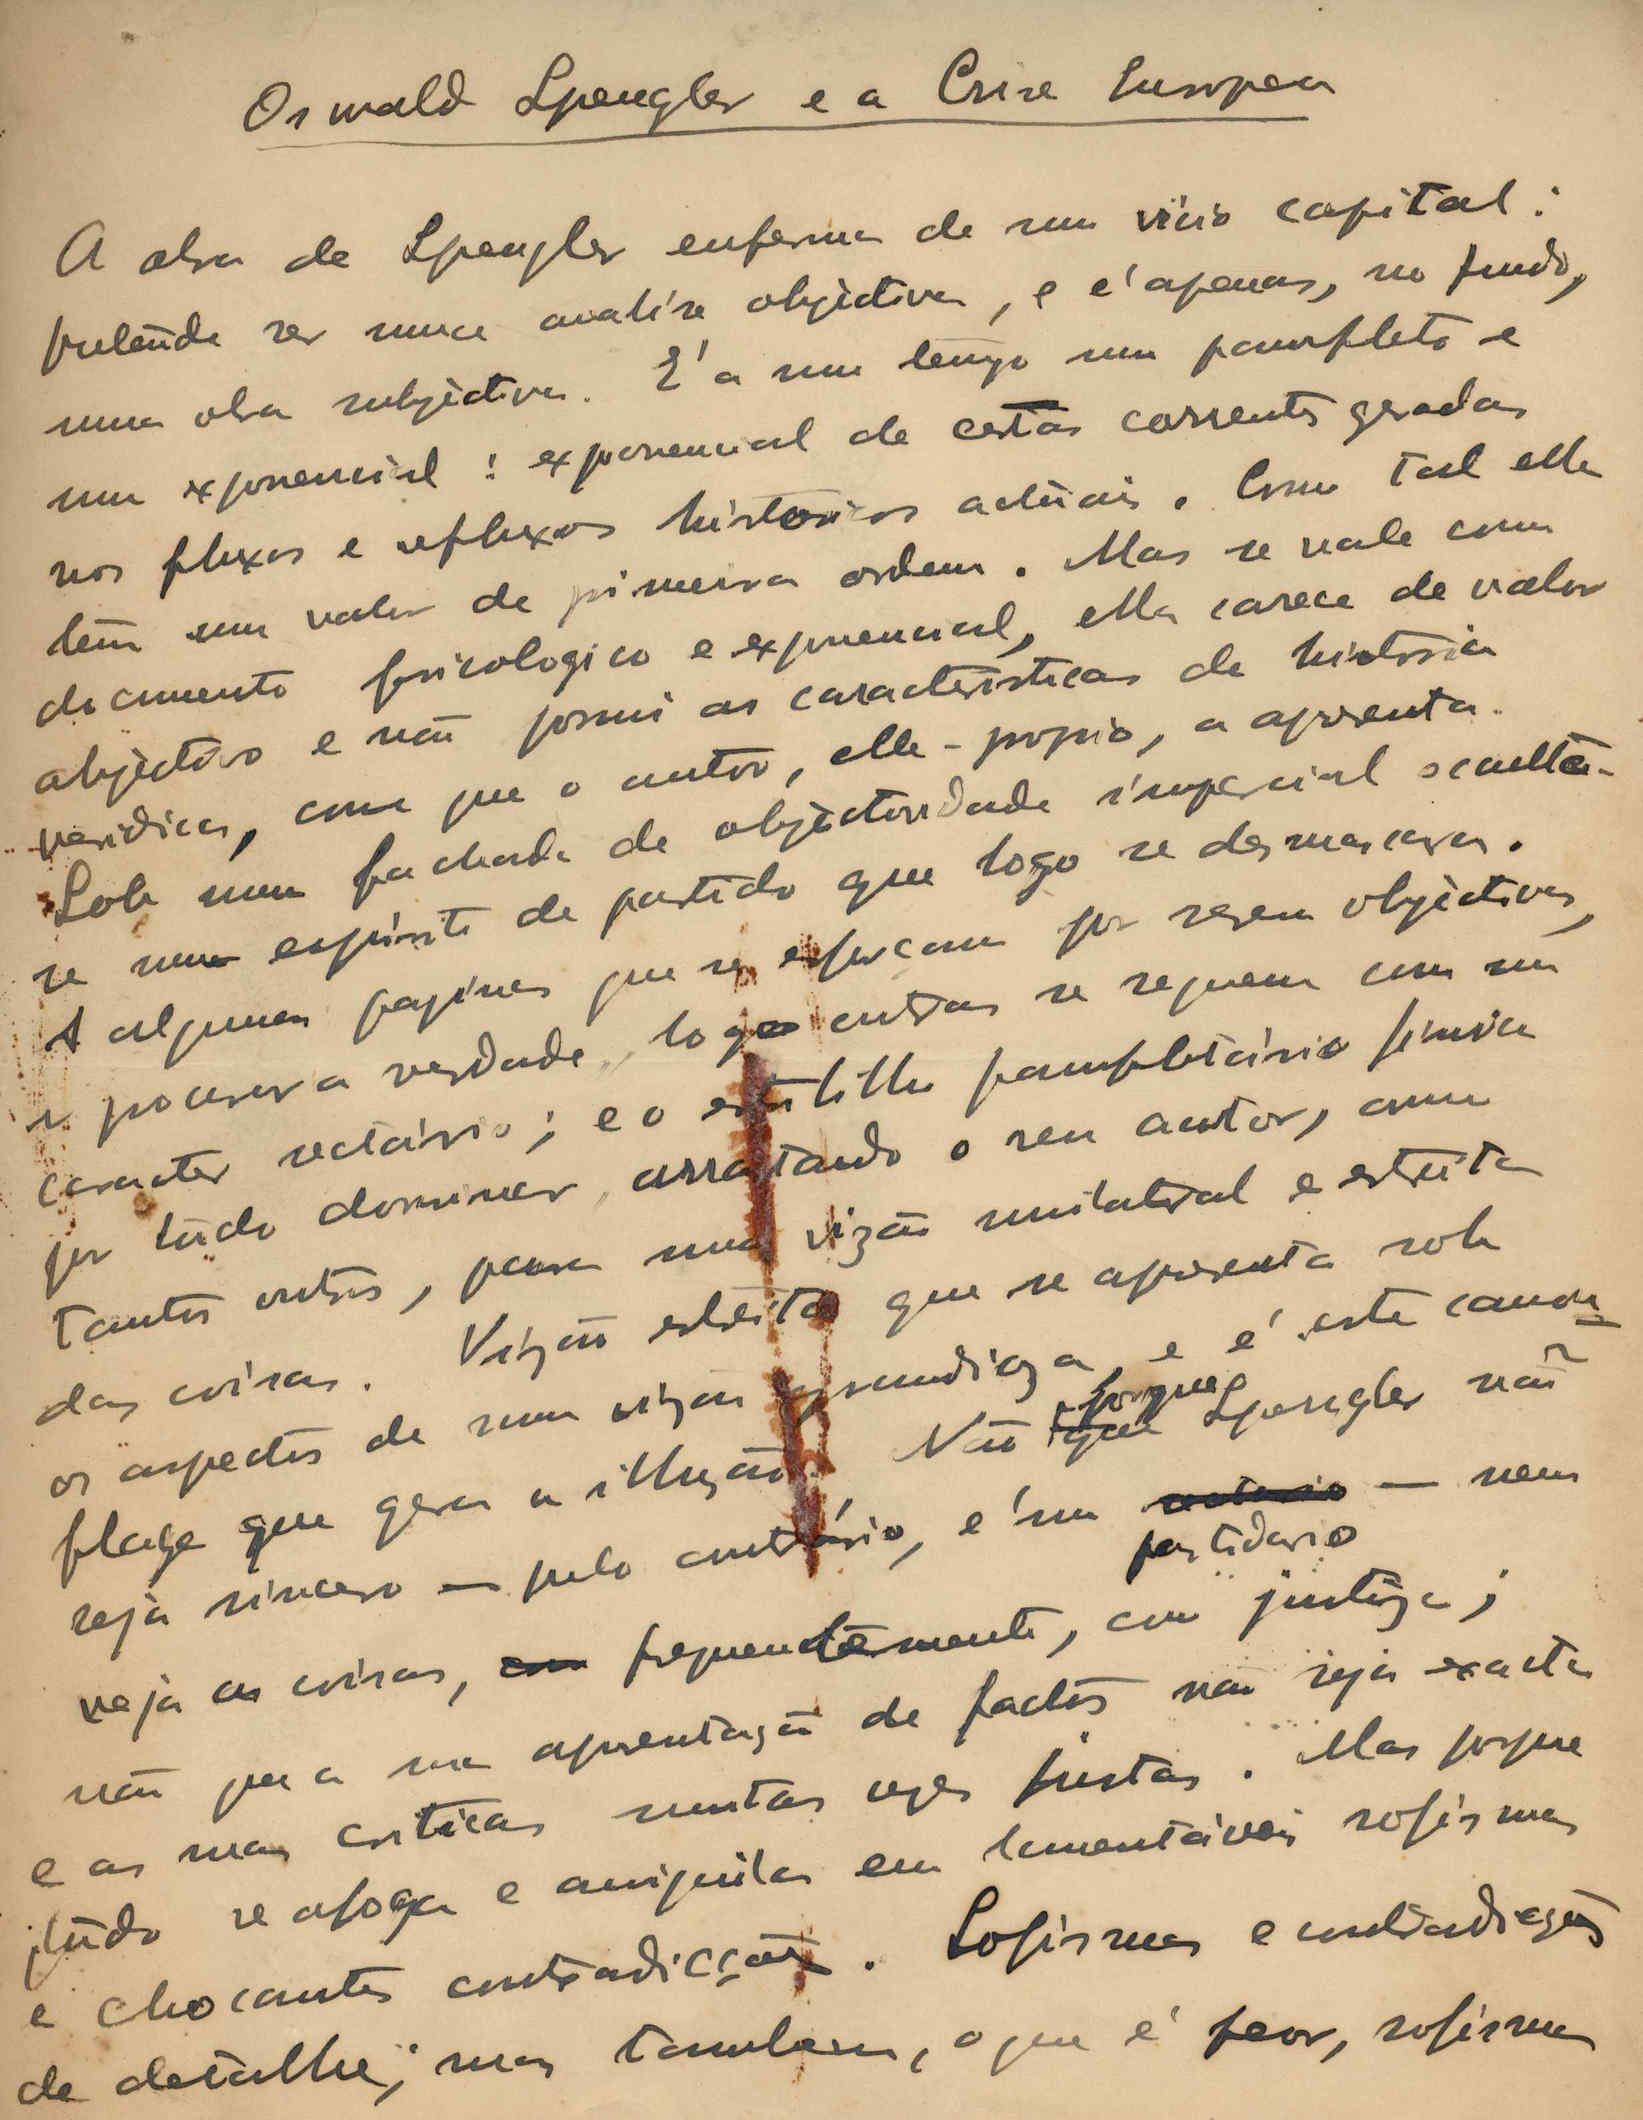 Oswald Spengler e a Crise Europea
A obra de Spengler enferma de um vicio capital:
pretende ser uma analise objèctiva, e é apenas, no fundo,
uma obra subjèctiva. É a um tempo um pamfleto e
um exponencial: exponencial de certas correntes geradas
nos fluxos e refluxos historicos actuais. Como tal ella
tem um valor de primeira ordem. Mas se vale como
documento psicologico e exponencial, ella carece de valor
objèctivo e não possui as caracteristicas de historia
veridica, com que o autor, elle-proprio, a apresenta.
Sob uma fachada de objèctividade imparcial occulta-
se um espirito de partido que logo se desmascara.
A algumas paginas que se esforçam por serem objèctivas,
e procurar a verdade, logo outras se seguem com um
caracter sectário; e o estilo pamfletário
por tudo dominar, arrastando o seu autor, como
tantos outros, para uma vizão unilateral e estreita
das coisas. Vizão estreita que se apresenta sob
os aspectos de uma vizão grandioza, e é esta camou-
flage que gera a illuzão. Não porque Spengler não
seja sincero — pelo contrário, é um partidario — nem
veja as coisas, frequentemente, com justiça;
não que a sua apresentação de factos não seja exacta
e as suas criticas muitas vezes justas. Mas porque
tudo se afoga e aniquila em lamentáveis sofismas
e chocantes contradicções. Sofismas e contradicções
de detalhe; mas tambem, o que é peor, sofismas